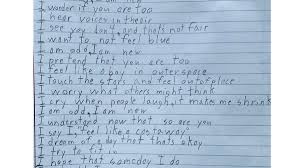 wonder if you are too
hear voices in the air
I see you don't, and that's not fair
I want to not feel blue
I am odd, I am new
I pretend that you are too
I feel like a boy in outerspace
I touch the stars and feel out of place
I worry what others might think
I cry when people laugh, it makes me shrink
I am odd, I am new
I understand now that so are you
I say I, "feel like a castaway"
I dream of a day that thats okay
I try to fit in
I hope that someday I do